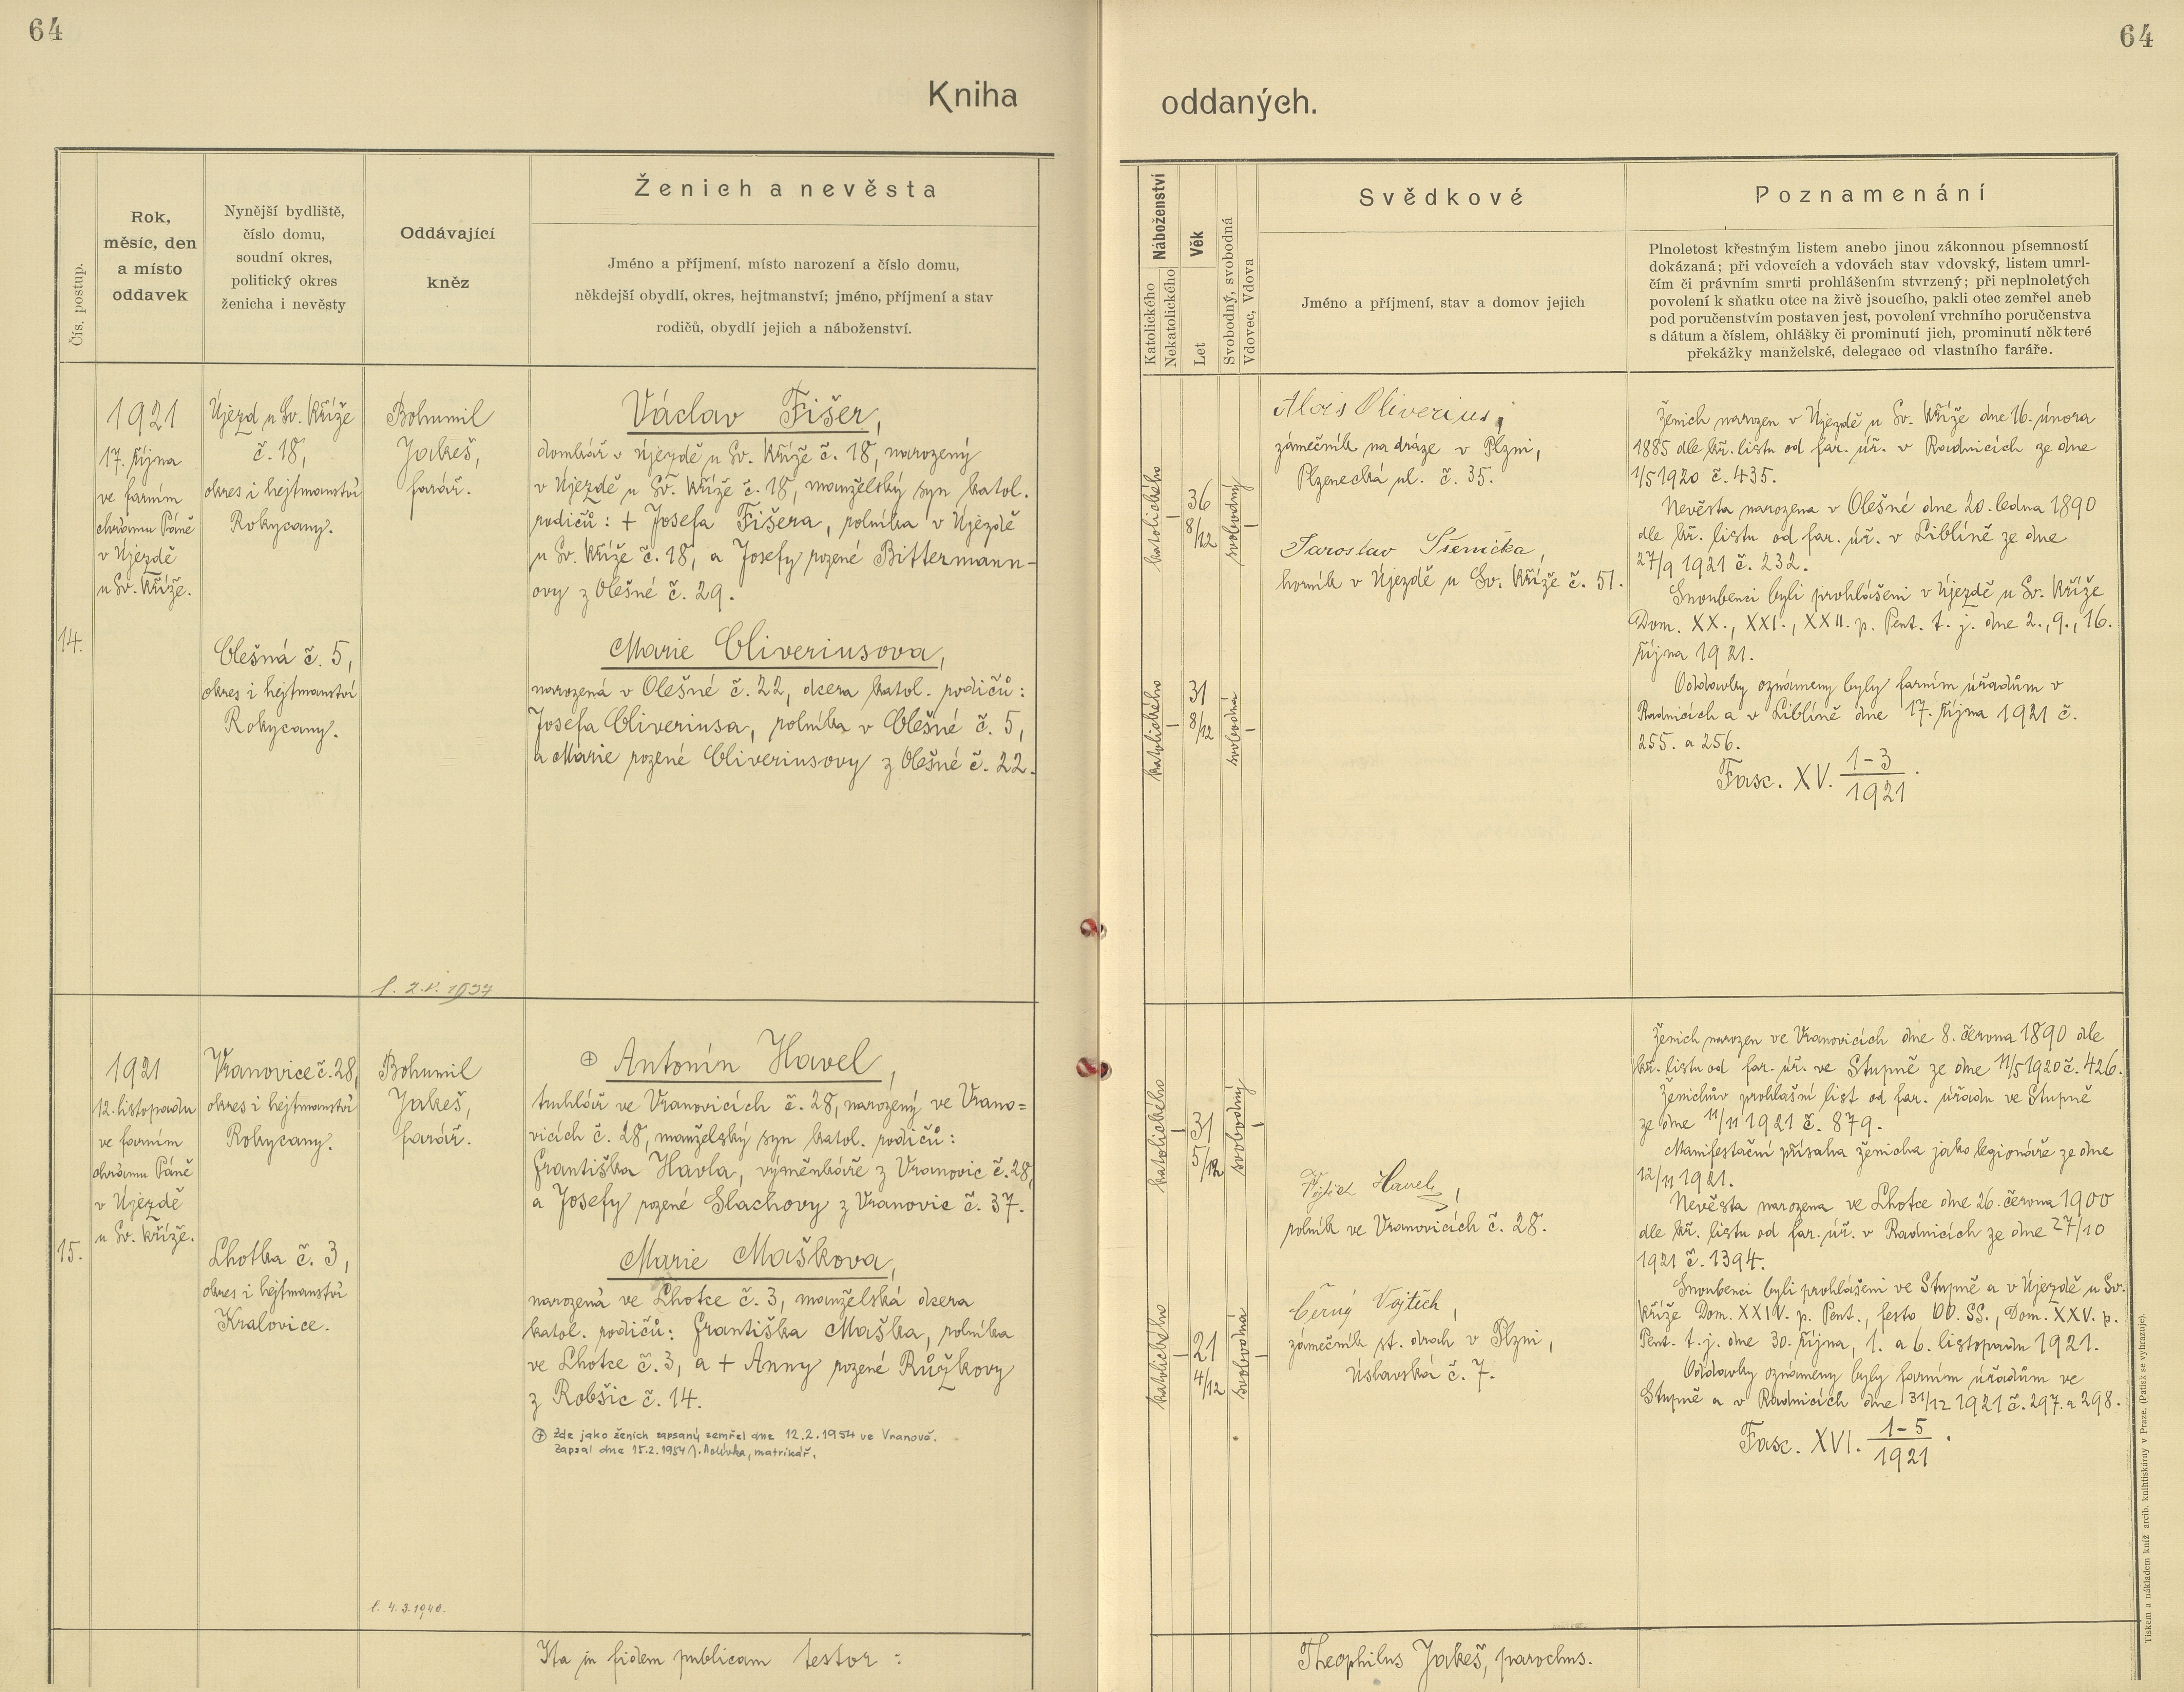 64
64
Kniha
oddaných.
Čís. postup.
Rok,
měsíc, den
a místo
oddavek
Nynější bydliště,
číslo domu,
soudní okres,
politický okres
ženicha i nevěsty
Oddávající
kněz
Ženich a nevěsta
Jméno a příjmení, místo narození a číslo domu,
někdejší obydlí, okres, hejtmanství; jméno, příjmení a stav
rodičů, obydlí jejich a náboženství.
Náboženství
Katolického
Nekatolického
Věk
Let
Svobodný, svobodná
Vdovec, Vdova
Svědkové
Jméno a příjmení, stav a domov jejich
Poznamenání
Plnoletost křestným listem anebo jinou zákonnou písemností
dokázaná; při vdovcích a vdovách stav vdovský, listem umrl-
čím či právním smrti prohlášením stvrzený; při neplnoletých
povolení k sňatku otce na živě jsoucího, pakli otec zemřel aneb
pod poručenstvím postaven jest, povolení vrchního poručenstva
s dátum a číslem, ohlášky či prominutí jich, prominutí některé
překážky manželské, delegace od vlastního faráře.
14.
1921
17. října
ve farním
chrámu Páně
v Újezdě
u Sv. Kříže.
Újezd u Sv. Kříže
č. 18,
okres i hejtmanství
Rokycany.
Olešná č. 5,
okres i hejtmanství
Rokycany.
Bohumil
Jakeš,
farář.
1937
Václav Fišer,
domkář v Újezdě u Sv. Kříže č. 18, narozený
v Újezdě u Sv. Kříže č. 18, manželský syn katol.
rodičů: + Josefa Fišera, rolníka v Újezdě
u Sv. Kříže č. 18, a Josefy rozené Bittermann-
ovy z Olešné č. 29.
Marie Oliveriusova,
narozená v Olešné č. 22, dcera katol. rodičů:
Josefa Oliveriusa, rolníka v Olešné č. 5,
a Marie rozené Oliveriusovy z Olešné č. 22.
katolického
36
8/12
svobodný
katolického
31
8/12
svobodná
Alois Oliverius,
zámečník na dráze v Plzni,
Plzenecká ul. č. 35.
Jaroslav
horník v Újezdě u Sv. Kříže č. 51.
Ženich narozen v Újezdě u Sv. Kříže dne 16. února
1885 dle kř. listu od far. úř. v Radnicích ze dne
1/5 1920 č. 435.
Nevěsta narozena v Olešné dne 20. ledna 1890
dle kř. listu od far. úř. v Liblíně ze dne
27/9 1921 č. 232.
Snoubenci byli prohlášeni v Újezdě u Sv. Kříže
Dom. XX., XXI., XXII. p. Pent. t. j. dne 2., 9., 16.
října 1921.
Oddavky oznámeny byly farním úřadům v
Radnicích a v Liblíně dne 17. října 1921 č.
255. a 256.
Fasc. XV. 1-3/1921.
15.
1921
12. listopadu
ve farním
chrámu Páně
v Újezdě
u Sv. Kříže.
Vranovice č. 28,
okres i hejtmanství
Rokycany.
Lhotka č. 3,
okres i hejtmanství
Kralovice.
Bohumil
Jakeš,
farář.
l. 4. 3. 1940.
⊕ Antonín Havel,
truhlář ve Vranovicích č. 28, narozený ve Vrano=
vicích č. 28, manželský syn katol. rodičů:
Františka Havla, výměnkáře z Vranovic č. 28,
a Josefy rozené Slachovy z Vranovic č. 37.
Marie Maškova,
narozená ve Lhotce č. 3, manželská dcera
katol. rodičů: Františka Maška, rolníka
ve Lhotce č. 3, a + Anny rozené Růžkovy
z Robšic č. 14.
⊕ Zde jako ženich zapsaný zemřel dne 12.2.1954 ve Vranově.
Zapsal dne 15.2.1954 matrikář.
katolického
31
5/12
svobodný
katolického
21
4/12
svobodná
Havel,
rolník ve Vranovicích č. 28.
Černý Vojtěch,
zámečník st. drah v Plzni,
Úslavská č. 7.
Ženich narozen ve Vranovicích dne 8. června 1890 dle
kř. listu od far. úř. ve Stupně ze dne 11/5 1920 č. 426.
Ženichův prohlašní list od far. úřadu ve Stupně
ze dne 11/11 1921 č. 879.
Manifestační přísaha ženicha jako legionáře ze dne
12/11 1921.
Nevěsta narozena ve Lhotce dne 26. června 1900
dle kř. listu od far. úř. v Radnicích ze dne 27/10
1921 č. 1394.
Snoubenci byli prohlášeni ve Stupně a v Újezdě u Sv.
Kříže Dom. XXIV. p. Pent., festo OO. SS., Dom. XXV. p.
Pent. t. j. dne 30. října, 1. a 6. listopadu 1921.
Oddavky oznámeny byly farním úřadům ve
Stupně a v Radnicích dne 31/12 1921 č. 297. a 298.
Fasc. XVI. 1-5/1921.
Ita in fidem publicam testor:
Theophilus Jakeš, parochus.
Tiskem a nákladem kníž. arcib. knihtiskárny v Praze. (Patisk se vyhrazuje).